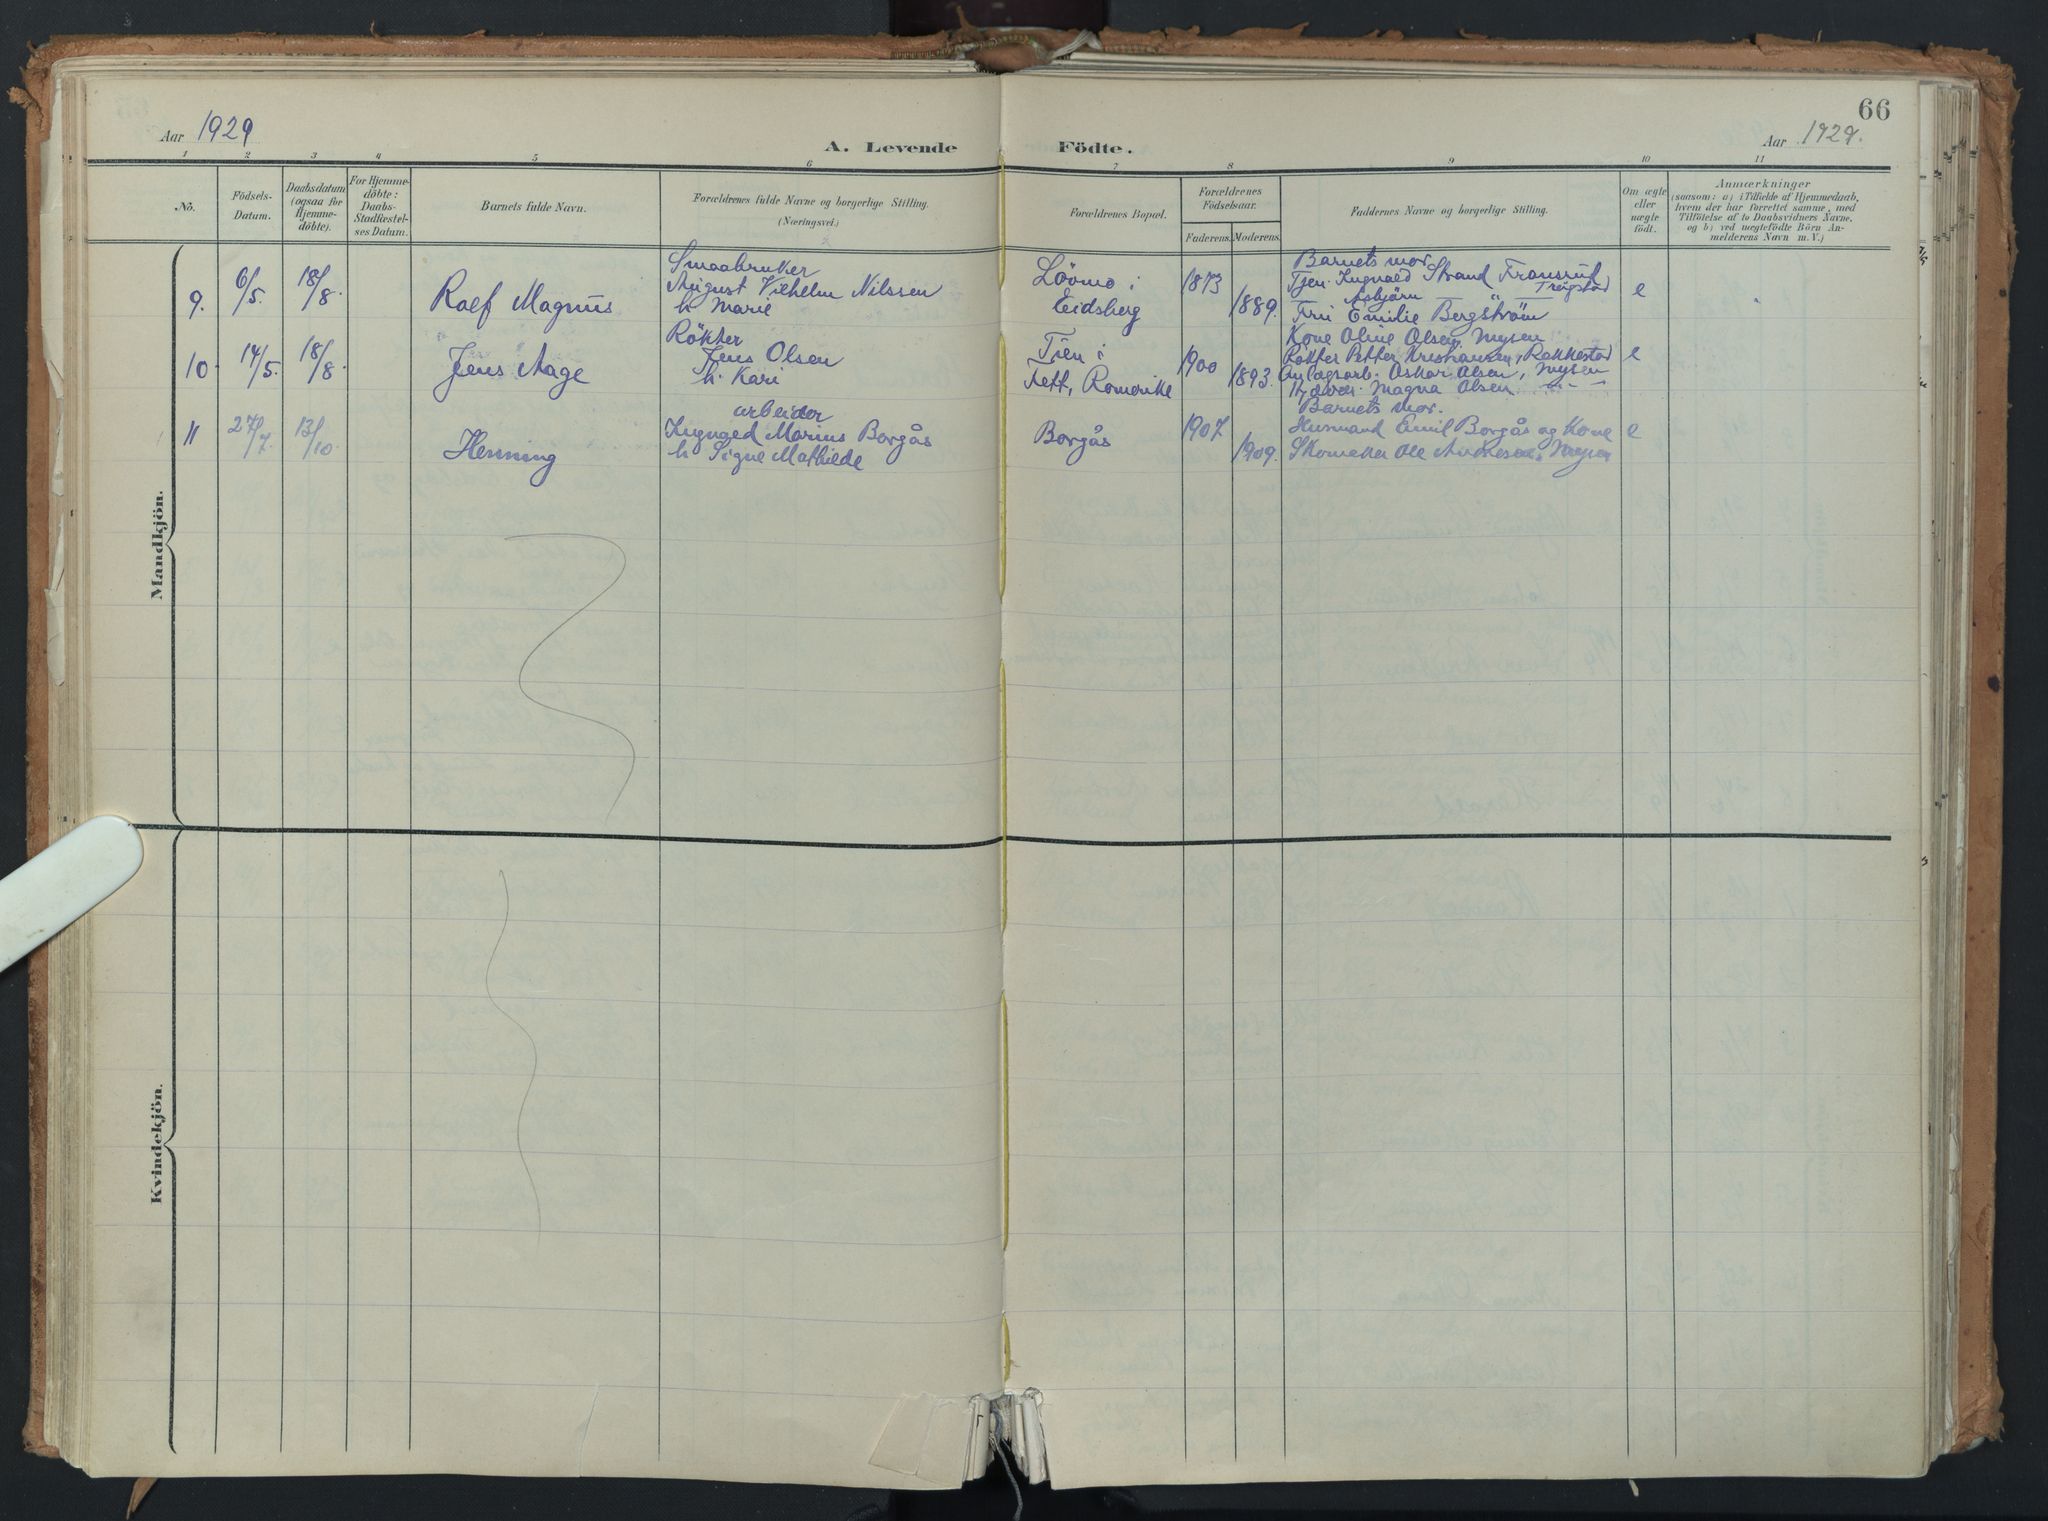 66
Aar 1929
A. Levende Födte.
Aar 1929.
1 2 3 4 5 6 7 8 9 10 11
No.
Födsels-
Datum.
Daabsdatum
(ogsaa for
Hjemme-
döbte).
For Hjemme-
döbte:
Daabs-
Stadfæstel-
ses Datum.
Barnets fulde Navn.
Forældrenes fulde Navne og borgerlige Stilling.
(Næringsvei.)
Forældrenes Bopæl.
Forældrenes
Födselsaar.
Faderens. Moderens.
Faddernes Navne og borgerlige Stilling.
Om ægte
eller
uægte
födt.
Anmærkninger
(saasom: a) i Tilfælde af Hjemmedaab,
hvem der har forrettet samme, med
Tilföielse af to Daabsvidners Navne,
og b) ved uægtefödte Börn An-
melderens Navn m. V.)
Mandkjön.
9. 6/5. 18/8.
Rolf Magnus
Smaabruker
August Vilhelm Nilssen
h. Marie
Lövmo i
Eidsberg
1873
1889.
Barnets mor.
Tjen. Ingvald Strand Fransrud
Asbjörn Trøgstad
Fru Emilie Bergström
e
10. 14/5. 18/8.
Jens Aage
Rökter
Jens Olsen
h. Kari
Tien i
Fett, Romerike
1900
1893.
Kone Oline Olsen, Mysen
Rökter Petter Kristiansen, Rakkestad
Anlægsarb. Oskar Olsen, Mysen
Magna Olsen
e
11 27/7. 13/10.
Henning
arbeider
Marius Borgås
h. Signe Mathilde
Borgås
1907
1909.
Barnets mor.
Husmand Emil Borgås og Kone
Skomaker Ole Andresen, Mysen
e
Kvindekjön.